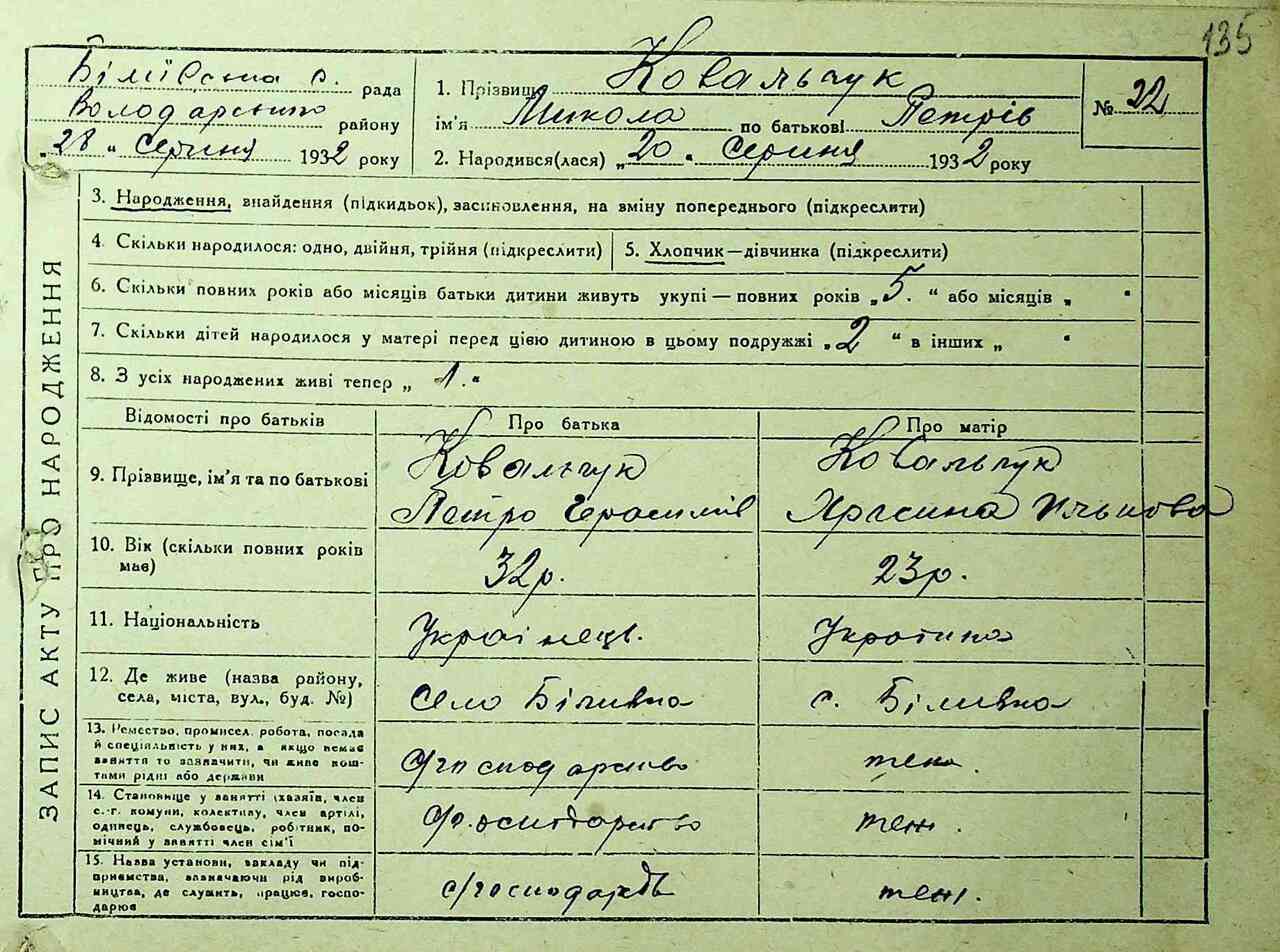 135
Біліївська с. рада
Володарського району
„28" Серпня 1932 року
1. Прізвище Ковальчук
ім'я Микола по батькові Петрів
2. Народився(лася) „20" Серпня 1932 року
№ 22
ЗАПИС АКТУ ПРО НАРОДЖЕННЯ
3. Народження, внайдення (підкидьок), засиновлення, на вміну попереднього (підкреслити)
4. Скільки народилося: одно, двійня, трійня (підкреслити)
5. Хлопчик—дівчинка (підкреслити)
6. Скільки повних років або місяців батьки дитини живуть укупі — повних років „5." або місяців „ "
7. Скільки дітей народилося у матері перед цією дитиною в цьому подружжі „2" в інших „ "
8. З усіх народжених живі тепер „1."
Відомості про батьків
Про батька
Про матір
9. Прізвище, ім'я та по батькові
Ковальчук
Петро Герасимів
Ковальчук
Ількова
10. Вік (скільки повних років
має)
32р.
23р.
11. Національність
Українець.
Українка
12. Де живе (назва району,
села, міста, вул., буд. №)
Село Біліївка
с. Біліївка
13. Ремество, промисел, робота, посада
й спеціяльність у них, а якщо немає
заняття то зазначити, чи живе кош-
тами рідні або держави
с/господарство
теж.
14. Становище у занятті (хазяїн, член
с.-г. комуни, колективу, член артілі,
одинець, службовець, робітник, по-
мічний у занятті член сім'ї
с/господарство
теж.
15. Назва установи, закладу чи під-
приємства, зазначаючи рід вироб-
ництва, де служить, працює, госпо-
дарює
с/господарств
теж.